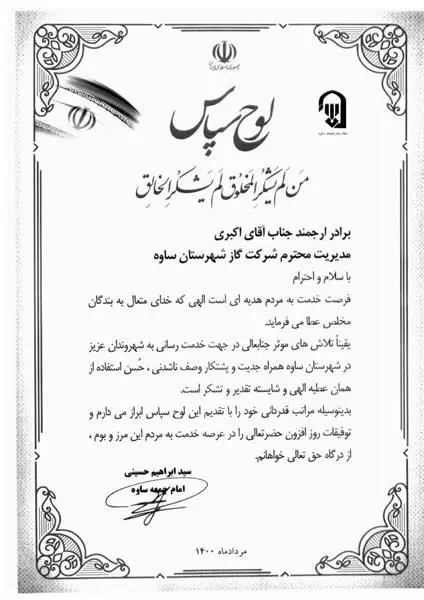 جمهوری اسلامی ایران
لوح سپاس
مَن لَم یَشکُرِ المَخلوق لَم یَشکُرِ الخالِق
برادر ارجمند جناب آقای اکبری
مدیریت محترم شرکت گاز شهرستان ساوه
با سلام و احترام
فرصت خدمت به مردم هدیه ای است الهی که خدای متعال به بندگان
مخلص عطا می فرماید.
یقیناً تلاش های موثر جنابعالی در جهت خدمت رسانی به شهروندان عزیز
در شهرستان ساوه همراه جدیت و پشتکار وصف ناشدنی ، حُسن استفاده از
همان عطیه الهی و شایسته تقدیر و تشکر است.
بدینوسیله مراتب قدردانی خود را با تقدیم این لوح سپاس ابراز می دارم و
توفیقات روز افزون حضرتعالی را در عرصه خدمت به مردم این مرز و بوم ،
از درگاه حق تعالی خواهانم.
سید ابراهیم حسینی
امام جمعه ساوه
مردادماه ۱۴۰۰